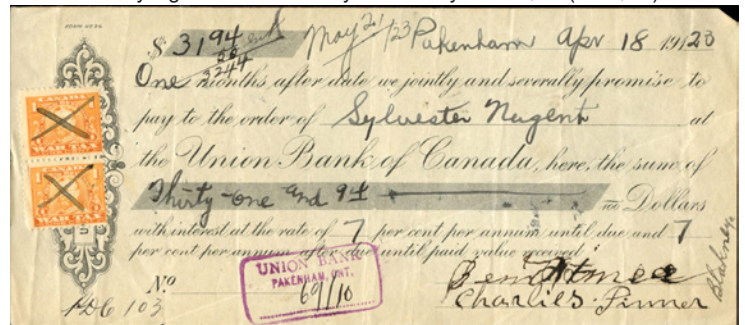 $ 31 94 May 21/23 Pakenham Apr 18 19120
50 int
3244
One months after date we jointly and severally promise to
pay to the order of Sylvester Nugent at
the Union Bank of Canada, here, the sum of
Thirty-one and 94 Dollars
with interest at the rate of 7 per cent per annum until due and 7
per cent per annum after due until paid value received
CANADA
WAR TAX
CANADA
WAR TAX
No
UNION BANK
PAKENHAM, ONT.
69/10
Charlies
103
Blakney